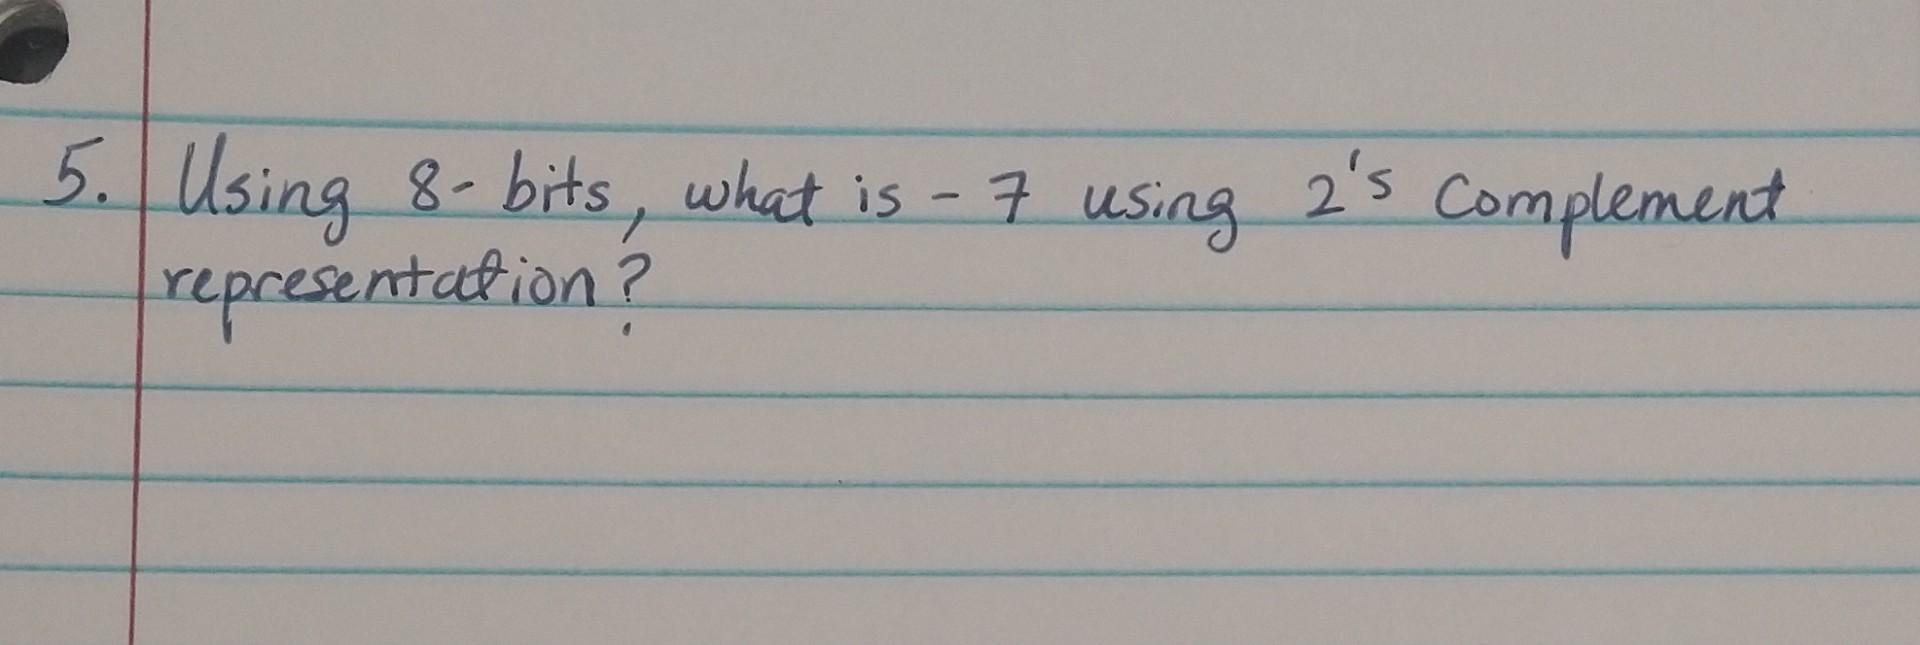 5. Using 8-bits, what is -7 using 2's Complement
representation?